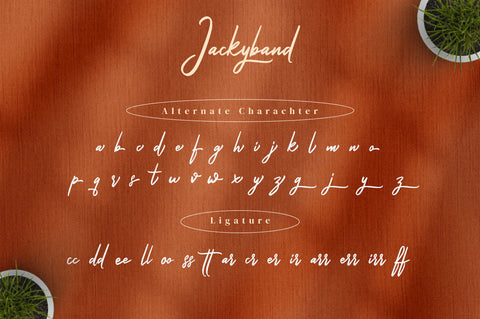 Jackyband
Alternate Charachter
a b c d e f g h i j k l m n o
p q r s t u v w x y z g j y z
Ligature
cc dd ee ll oo ss tt ar cr er ir arr err irr ff